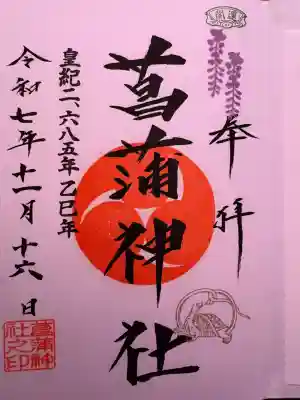 奉拝
菖蒲神社
皇紀二、六八五年 乙巳年
令和七年十一月十六日
菖蒲神
社之印